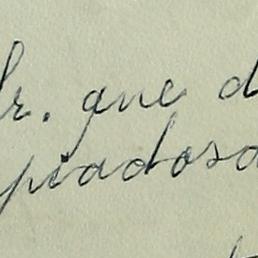 Sr. que d
piadosa